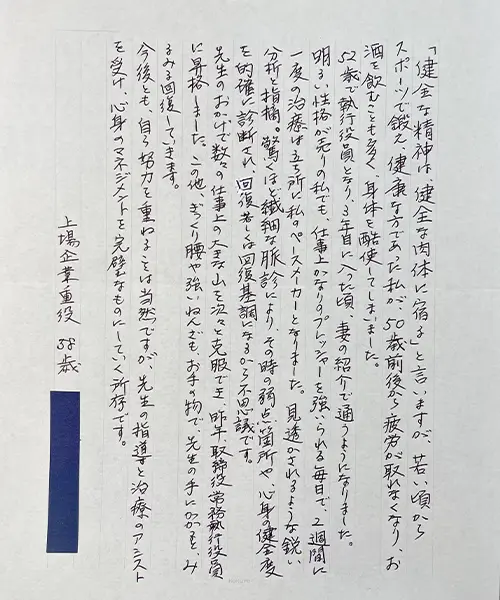 「健全な精神は、健全な肉体に宿る」と言いますが、若い頃から
スポーツで鍛え、健康な方であった私が、50歳前後から疲労が取れなくなり、お
酒を飲むことも多く、身体を酷使してしまいました。
52歳で執行役員となり、3年目に入った頃、妻の紹介で通うようになりました。
明るい性格が売りの私でも、仕事上かなりのプレッシャーを強いられる毎日で、2週間に
一度の治療は立ち所に私のペースメーカーとなりました。見透かされるような鋭い
分析と指摘。驚くほど繊細な脈診により、その時の弱点箇所や、心身の健全度
を的確に診断され、回復若しくは回復基調になるから不思議です。
先生のおかげで数々の仕事上の大きな山を次々と克服でき、昨年、取締役常務執行役員
に昇格しました。この他、ぎっくり腰や強いねんざも、お手の物で、先生の手にかかると、み
るみる回復していきます。
今後とも、自ら努力を重ねることは当然ですが、先生の指導と治療のアシスト
を受け、心身のマネジメントを完璧なものにしていく所存です。
上場企業重役 58歳